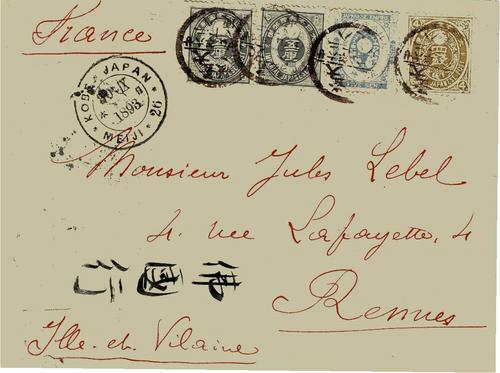 France
KOBE JAPAN
1893
MEIJI 26
Monsieur Jules Lebel
4. rue Lafayette, 4
佛國行
Rennes
Ille-et-Vilaine